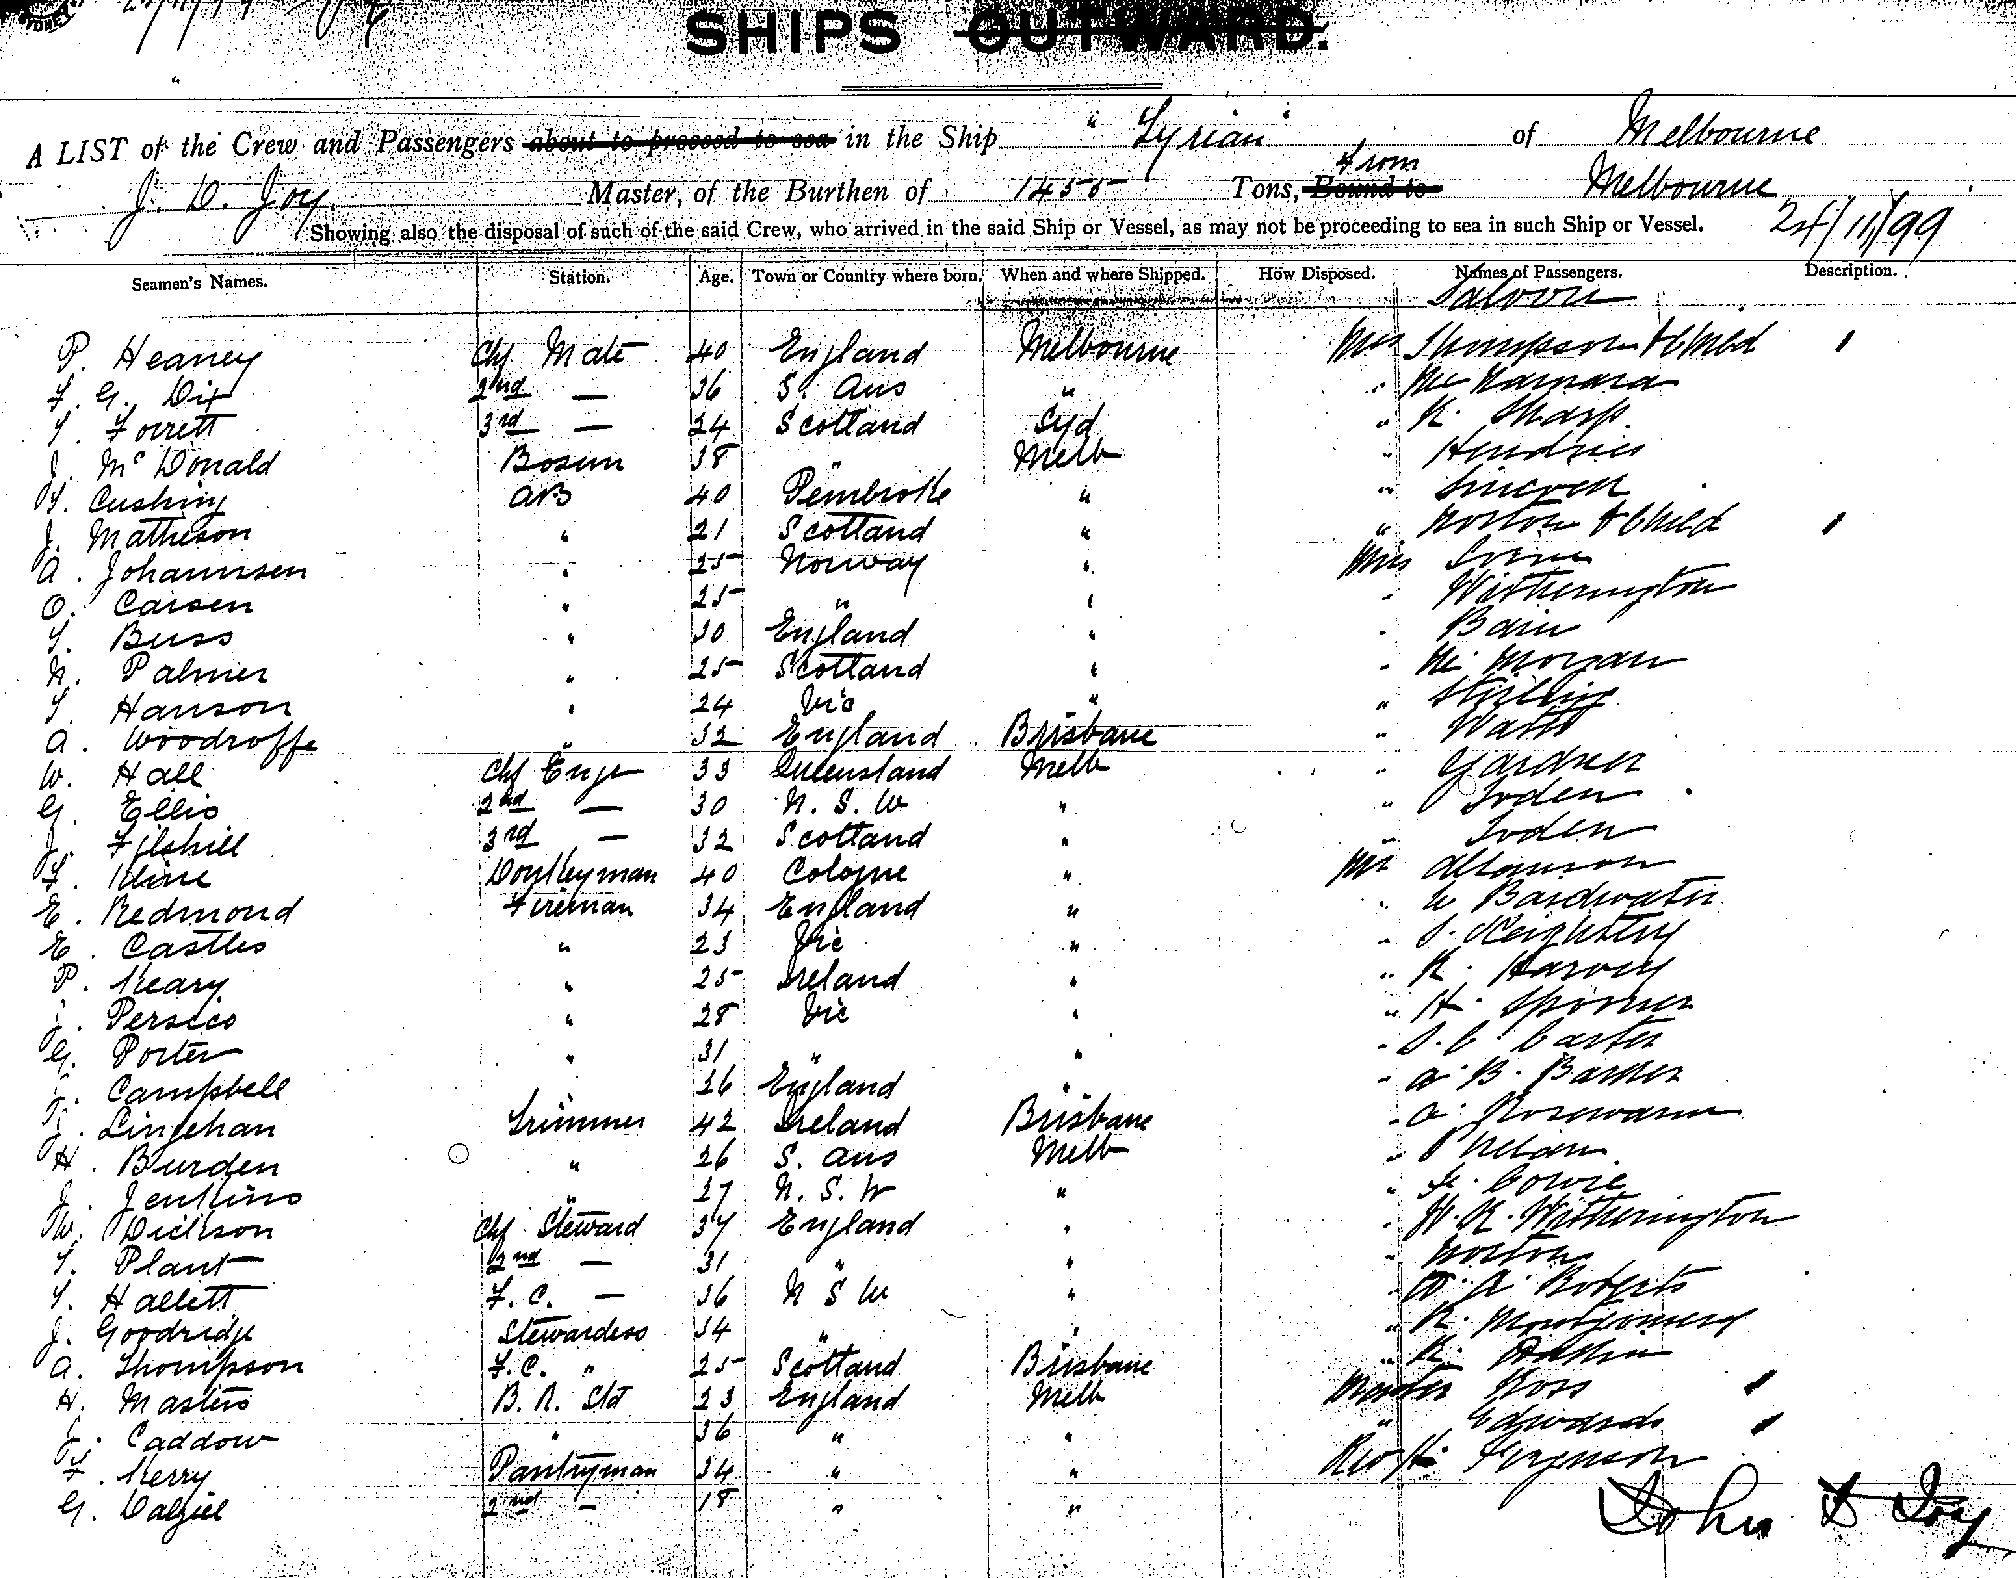 SHIPS OUTWARD.
A LIST of the Crew and Passengers about to proceed to sea in the Ship "Tyrian" of Melbourne
J. D. Joy Master, of the Burthen of 1455 Tons, Bound to from Melbourne
24/11/99
Showing also the disposal of such of the said Crew, who arrived in the said Ship or Vessel, as may not be proceeding to sea in such Ship or Vessel.
Seamen's Names. Station. Age. Town or Country where born. When and where Shipped. How Disposed. Names of Passengers. Description.
Saloon
P. Heaney Chf Mate 40 England Melbourne Mrs Thompson & Child 1
F. G. Dix 2nd — 36 S. Aus " " McNamara
T. Forrett 3rd — 24 Scotland Syd " R. Sharp
J. McDonald Bosun 38 " Melb " Hendries
T. Cushing AB 40 Pembroke " "
J. Matheson " 21 Scotland " " Norton & Child 1
A. Johannsen " 25 Norway " Miss
O. Carsen " 25 " " " Witherington
T. Buss " 30 England " " Bain
N. Palmer " 25 Scotland " " Morgan
T. Hanson " 24 Vic " " Stirling
A. Woodroffe " 32 England Brisbane " Watts
W. Hall Chf Engr 33 Queensland Melb " Gardner
G. Ellis 2nd — 30 N. S. W " " Toden
J. Filshill 3rd — 32 Scotland " " Toden
F. Kline Donkeyman 40 Cologne " Mr
E. Redmond Fireman 34 England " "
E. Castles " 23 Vic " " Keightley
P. Neary " 25 Ireland " " R. Harvey
J. Perseco " 28 Vic " " H. Spooner
G. Porter " 31 " " " J. C. Carter
J. Campbell " 36 England " " A. B. Barker
J. Linehan Trimmer 42 Ireland Brisbane "
H. Burden " 26 S. Aus Melb " Phelan
J. Jenkins " 27 N. S. W " " Cowie
W. Dickson Chf Steward 37 England " " W. R. Witherington
T. Plant 2nd — 31 " " " Norton
T. Hallett F. C. — 36 N S W " " A. Roberts
J. Goodridge Stewardess 34 " " " R. Montgomery
A. Thompson F.C. " 25 Scotland Brisbane " R.
H. Masters B. R. Std 23 England Melb Master Ross 1
J. Caddow " 36 " " " Edwards 1
F. Merry Pantryman 34 " " Rev H. Ferguson
G. Dalziel 2nd — 18 " "
John D Joy